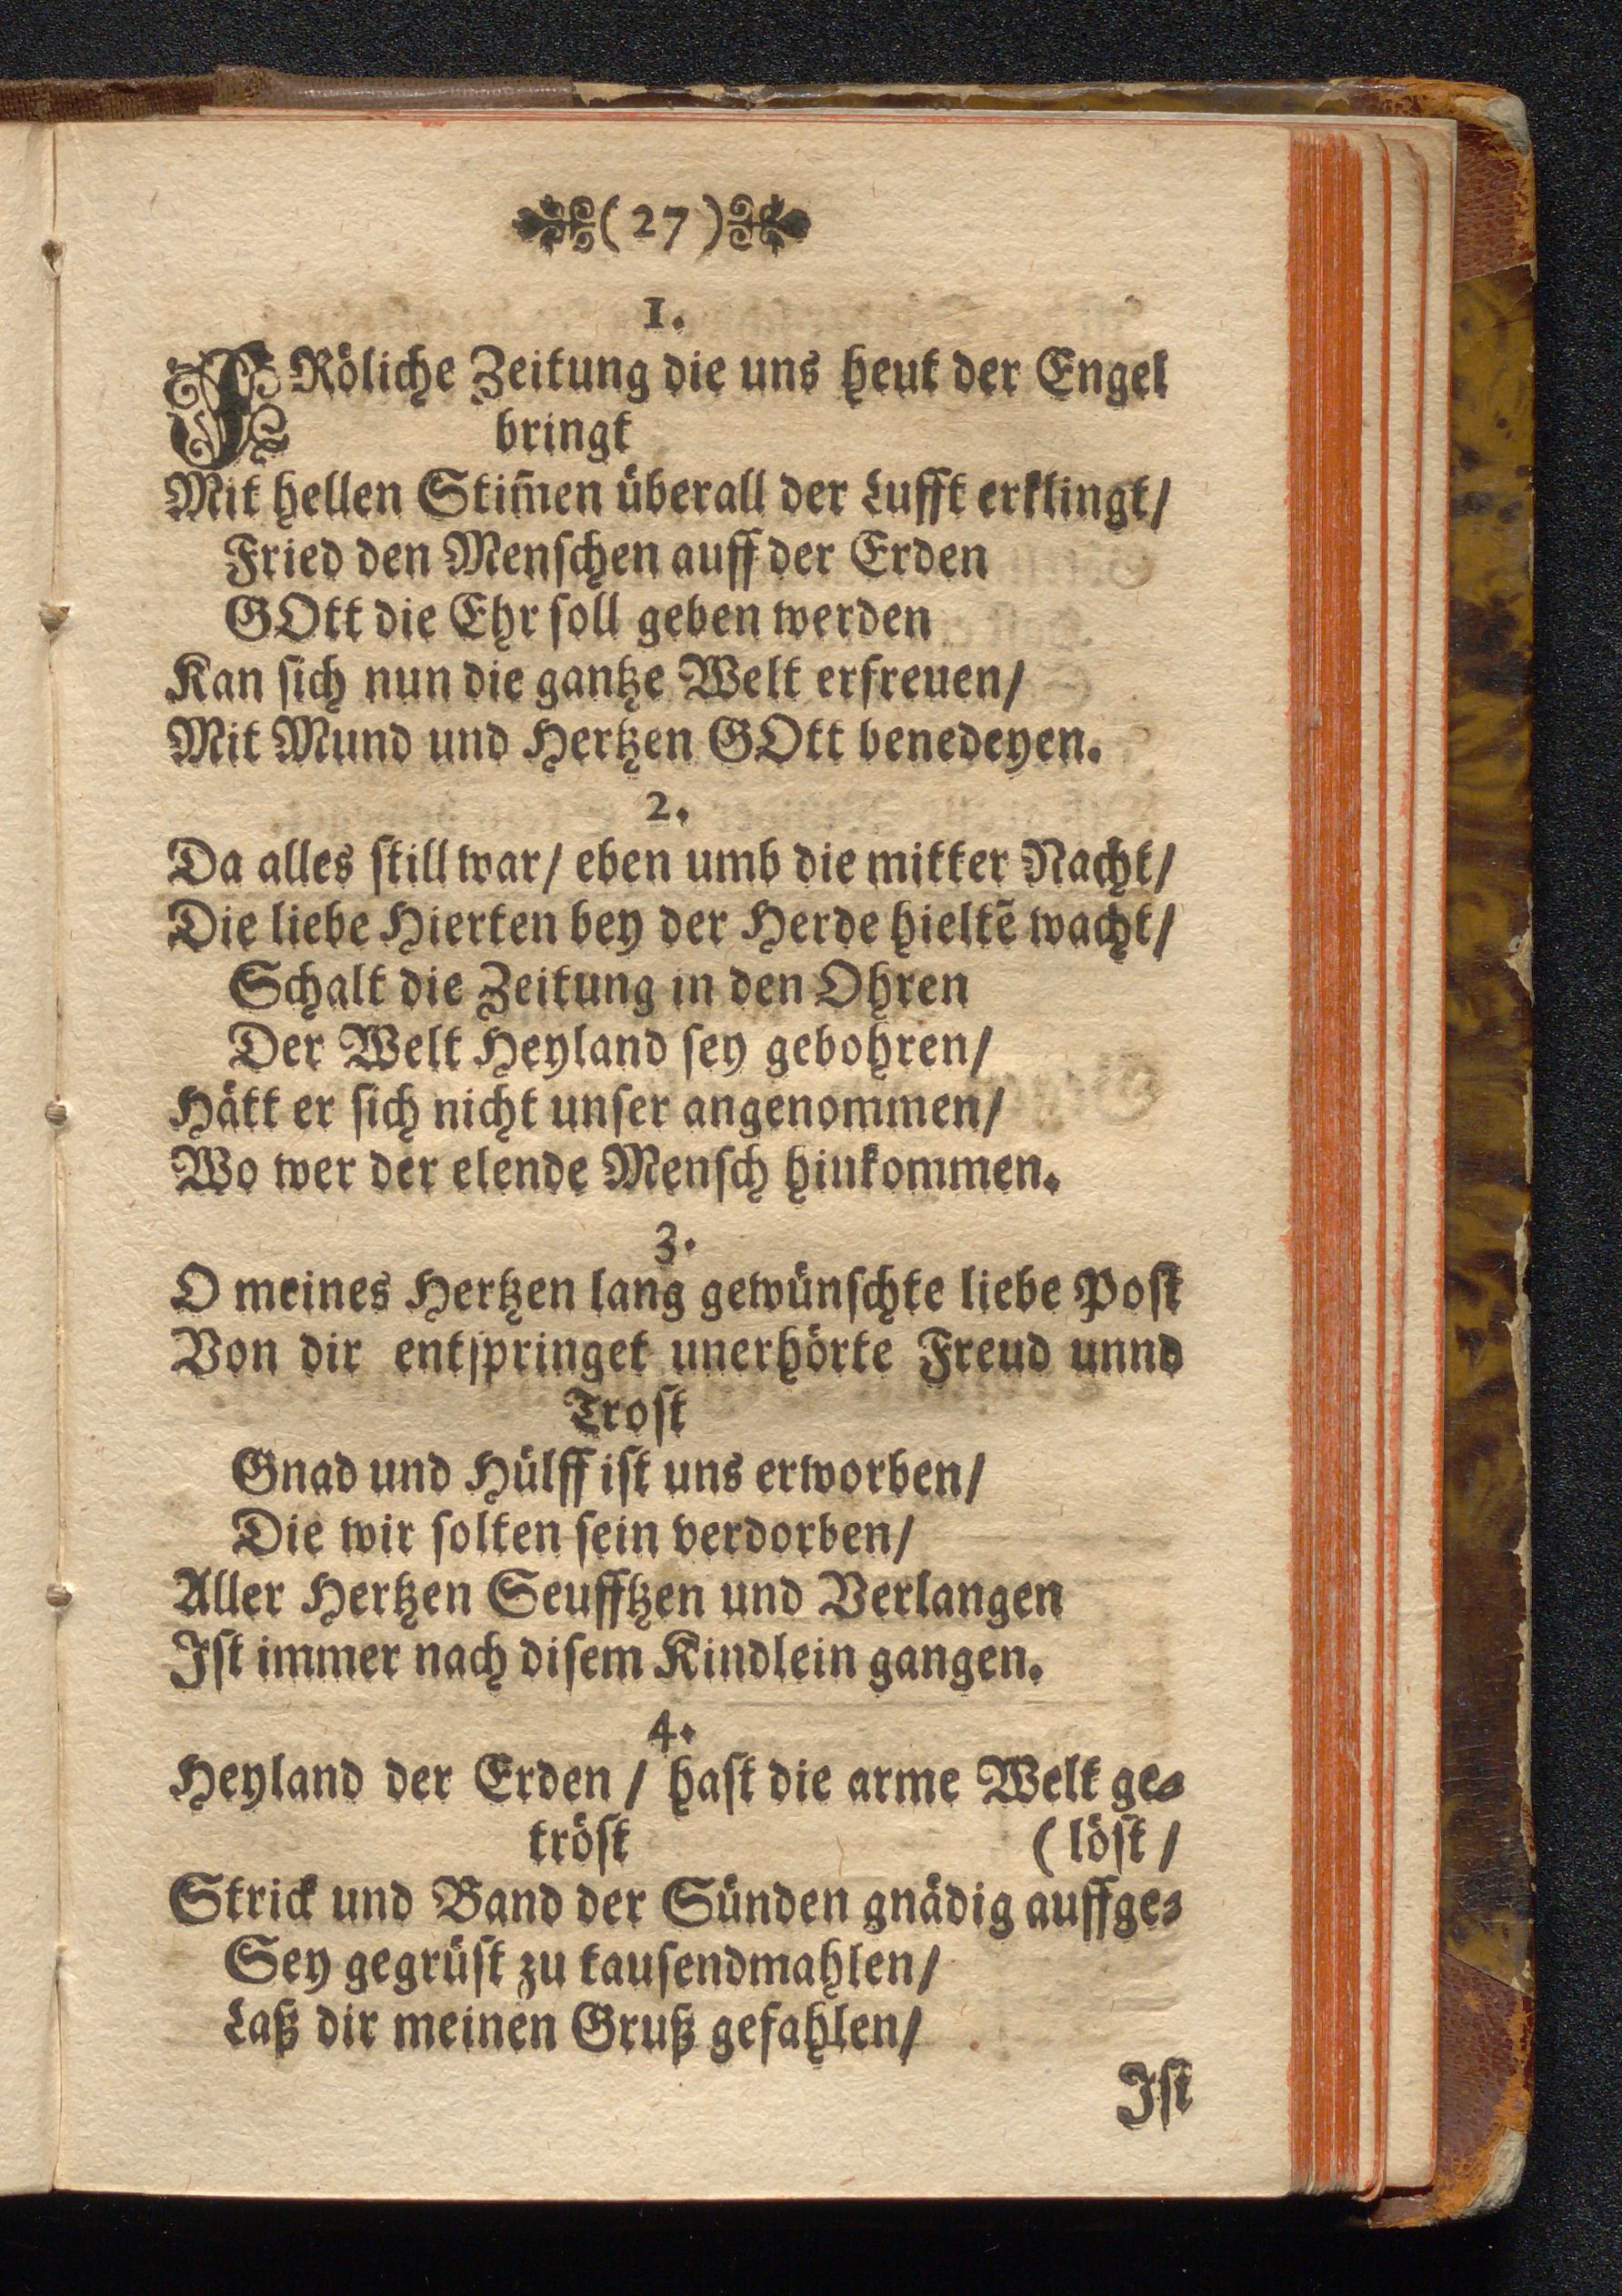 (27)
1.
FRöliche Zeitung die uns heut der Engel
bringt
Mit hellen Stim̄en überall der Lufft erklingt/
Fried den Menschen auff der Erden
GOtt die Ehr soll geben werden
Kan sich nun die gantze Welt erfreuen/
Mit Mund und Hertzen GOtt benedeyen.
2.
Da alles still war/ eben umb die mitter Nacht/
Die liebe Hierten bey der Herde hieltẽ wacht/
Schalt die Zeitung in den Ohren
Der Welt Heyland sey gebohren/
Hätt er sich nicht unser angenommen/
Wo wer der elende Mensch hinkommen.
3.
O meines Hertzen lang gewünschte liebe Post
Von dir entspringet unerhörte Freud unnd
Trost
Gnad und Hülff ist uns erworben/
Die wir solten sein verdorben/
Aller Hertzen Seufftzen und Verlangen
Ist immer nach disem Kindlein gangen.
4.
Heyland der Erden / hast die arme Welt ge-
tröst (löst /
Strick und Band der Sünden gnädig auffge-
Sey gegrüst zu tausendmahlen/
Laß dir meinen Gruß gefahlen/
Ist